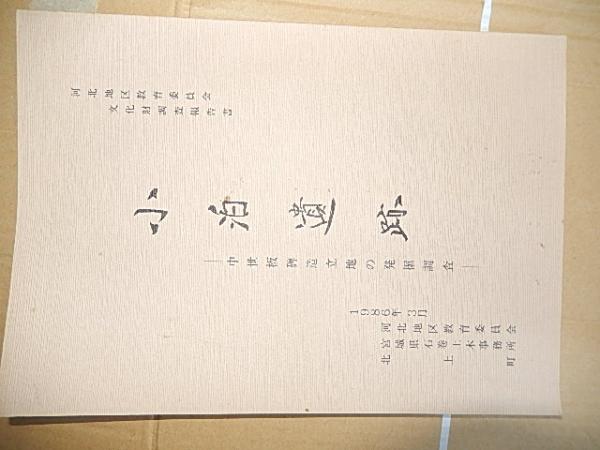 河北地区教育委員会
文化財調査報告書
小泊遺跡
―中世板碑造立地の発掘調査―
1986年3月
河北地区教育委員会
宮城県石巻土木事務所
北上町